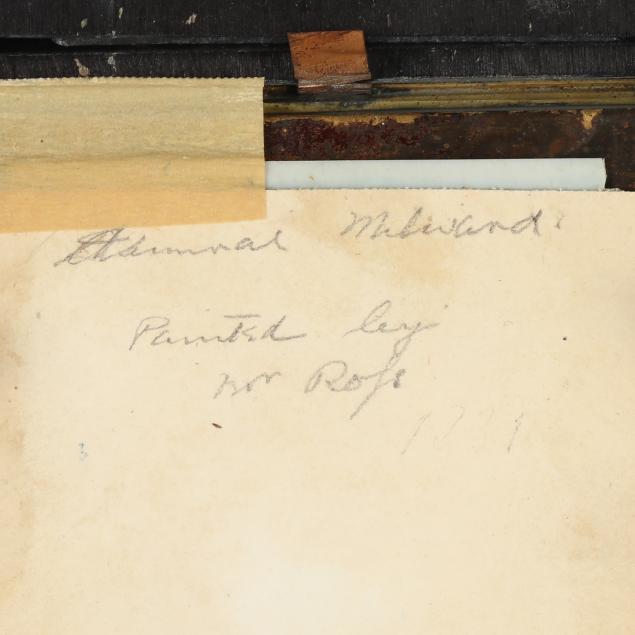 Admiral Milward
Painted by
Mr Ross